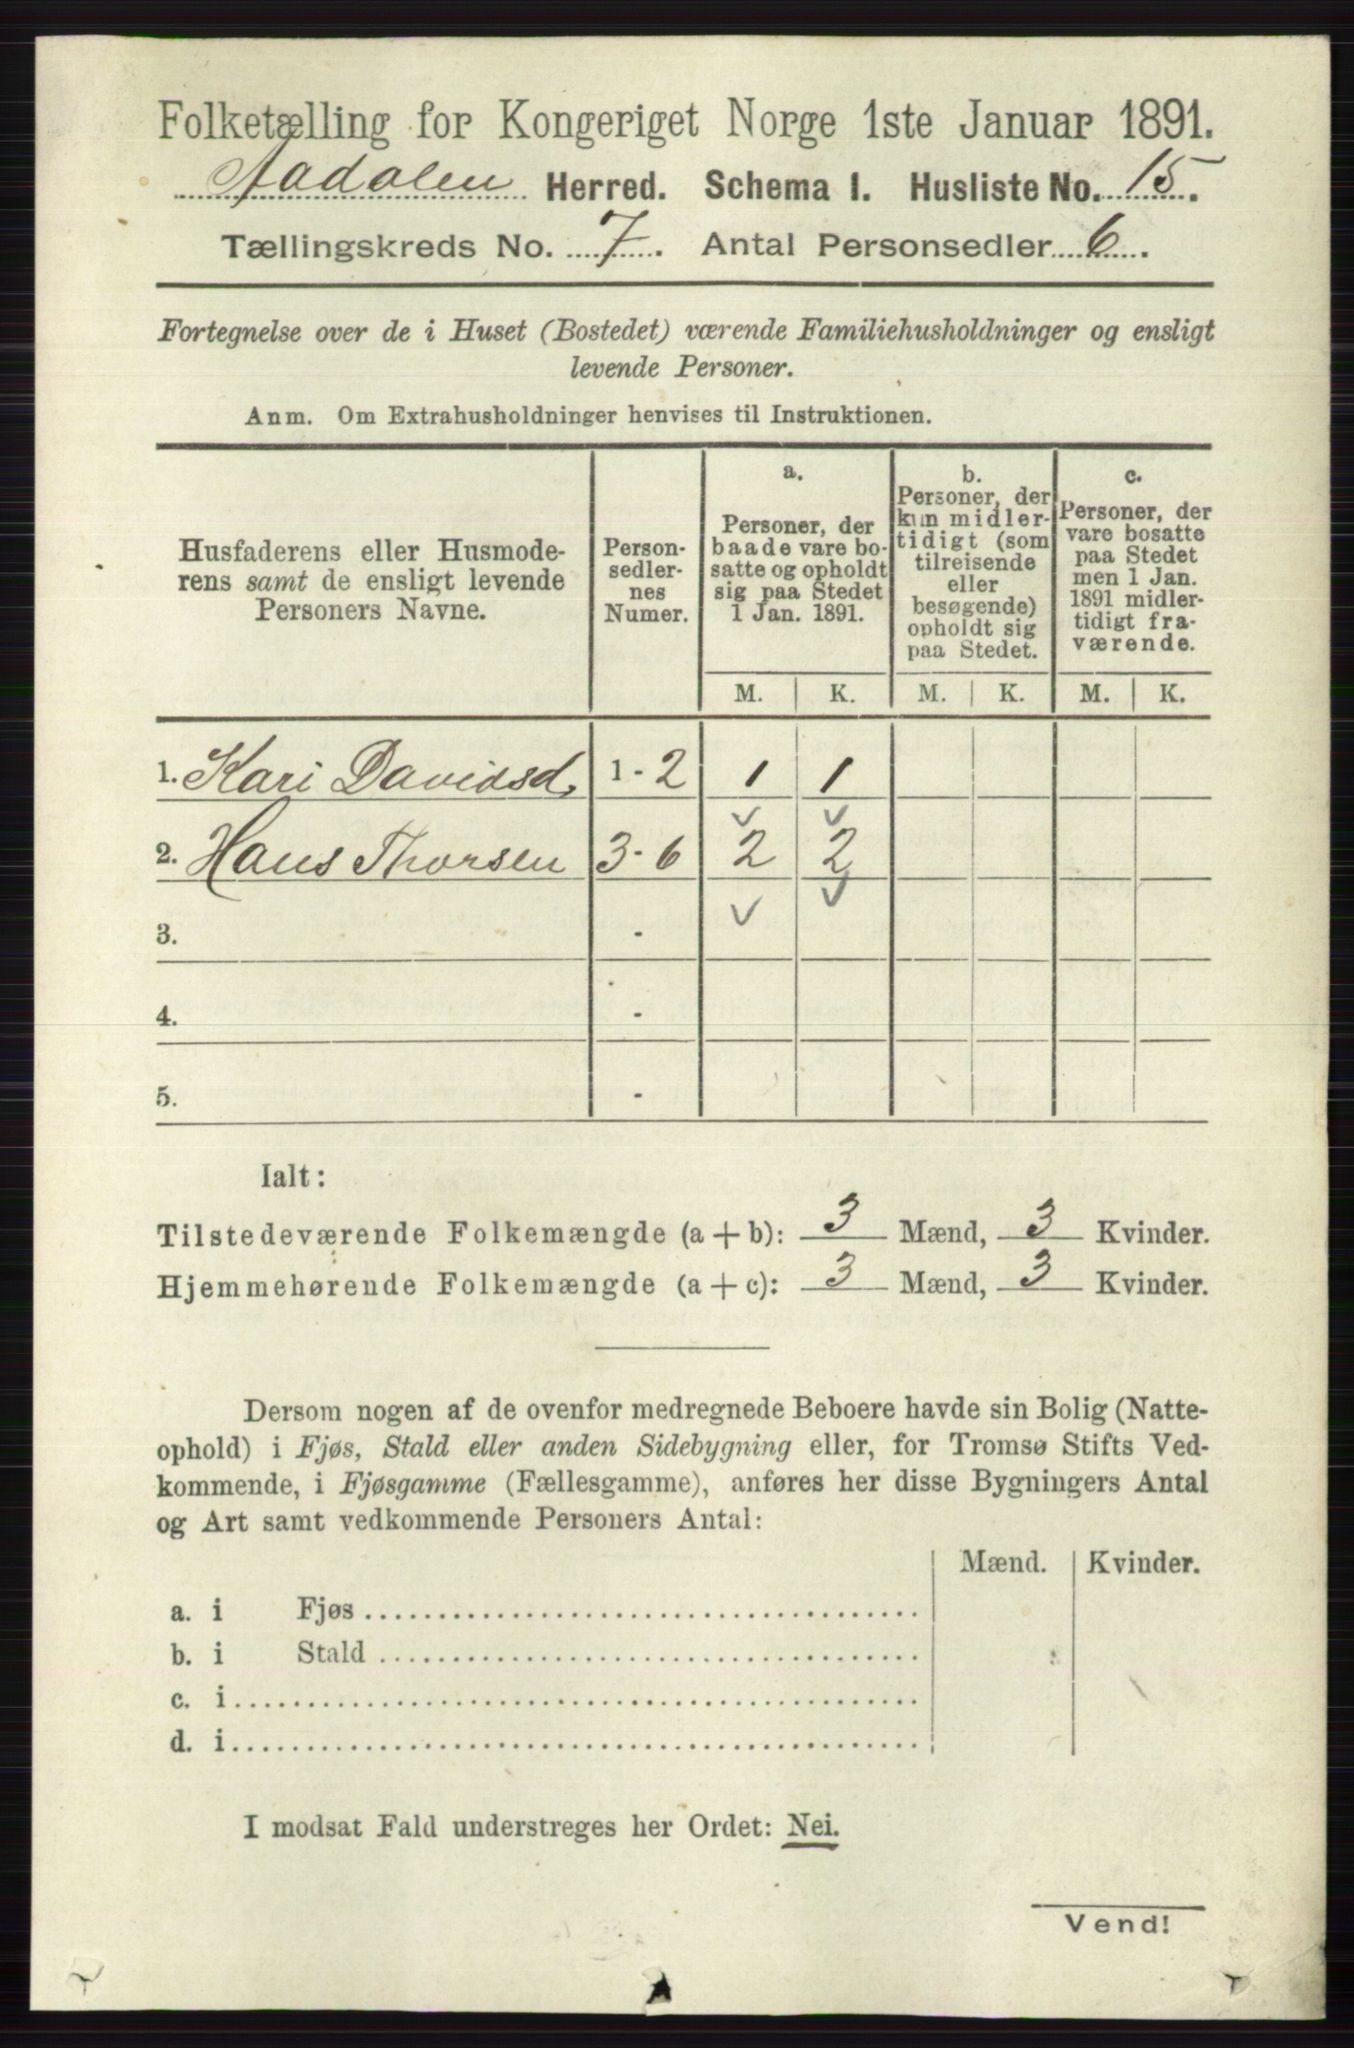 Folketælling for Kongeriget Norge 1ste Januar 1891.
Aadalen Herred. Schema I. Husliste No. 15.
Tællingskreds No. 7. Antal Personsedler 6.
Fortegnelse over de i Huset (Bostedet) værende Familiehusholdninger og ensligt
levende Personer.
Anm. Om Extrahusholdninger henvises til Instruktionen.
Husfaderens eller Husmode-
rens samt de ensligt levende
Personers Navne.
Person-
sedler-
nes
Numer.
a.
Personer, der
baade vare bo-
satte og opholdt
sig paa Stedet
1 Jan. 1891.
b.
Personer, der
kun midler-
tidigt (som
tilreisende
eller
besøgende)
opholdt sig
paa Stedet.
c.
Personer, der
vare bosatte
paa Stedet
men 1 Jan.
1891 midler-
tidigt fra-
værende.
M. K. M. K. M. K.
1. Kari Davidsd. 1 - 2 1 1
2. Hans Thorsen 3 - 6 2 2
3. -
4. -
5. -
Ialt:
Tilstedeværende Folkemængde (a + b): 3 Mænd, 3 Kvinder.
Hjemmehørende Folkemængde (a + c): 3 Mænd, 3 Kvinder.
Dersom nogen af de ovenfor medregnede Beboere havde sin Bolig (Natte-
ophold) i Fjøs, Stald eller anden Sidebygning eller, for Tromsø Stifts Ved-
kommende, i Fjøsgamme (Fællesgamme), anføres her disse Bygningers Antal
og Art samt vedkommende Personers Antal:
Mænd. Kvinder.
a. i Fjøs
b. i Stald
c. i
d. i
I modsat Fald understreges her Ordet: Nei.
Vend!